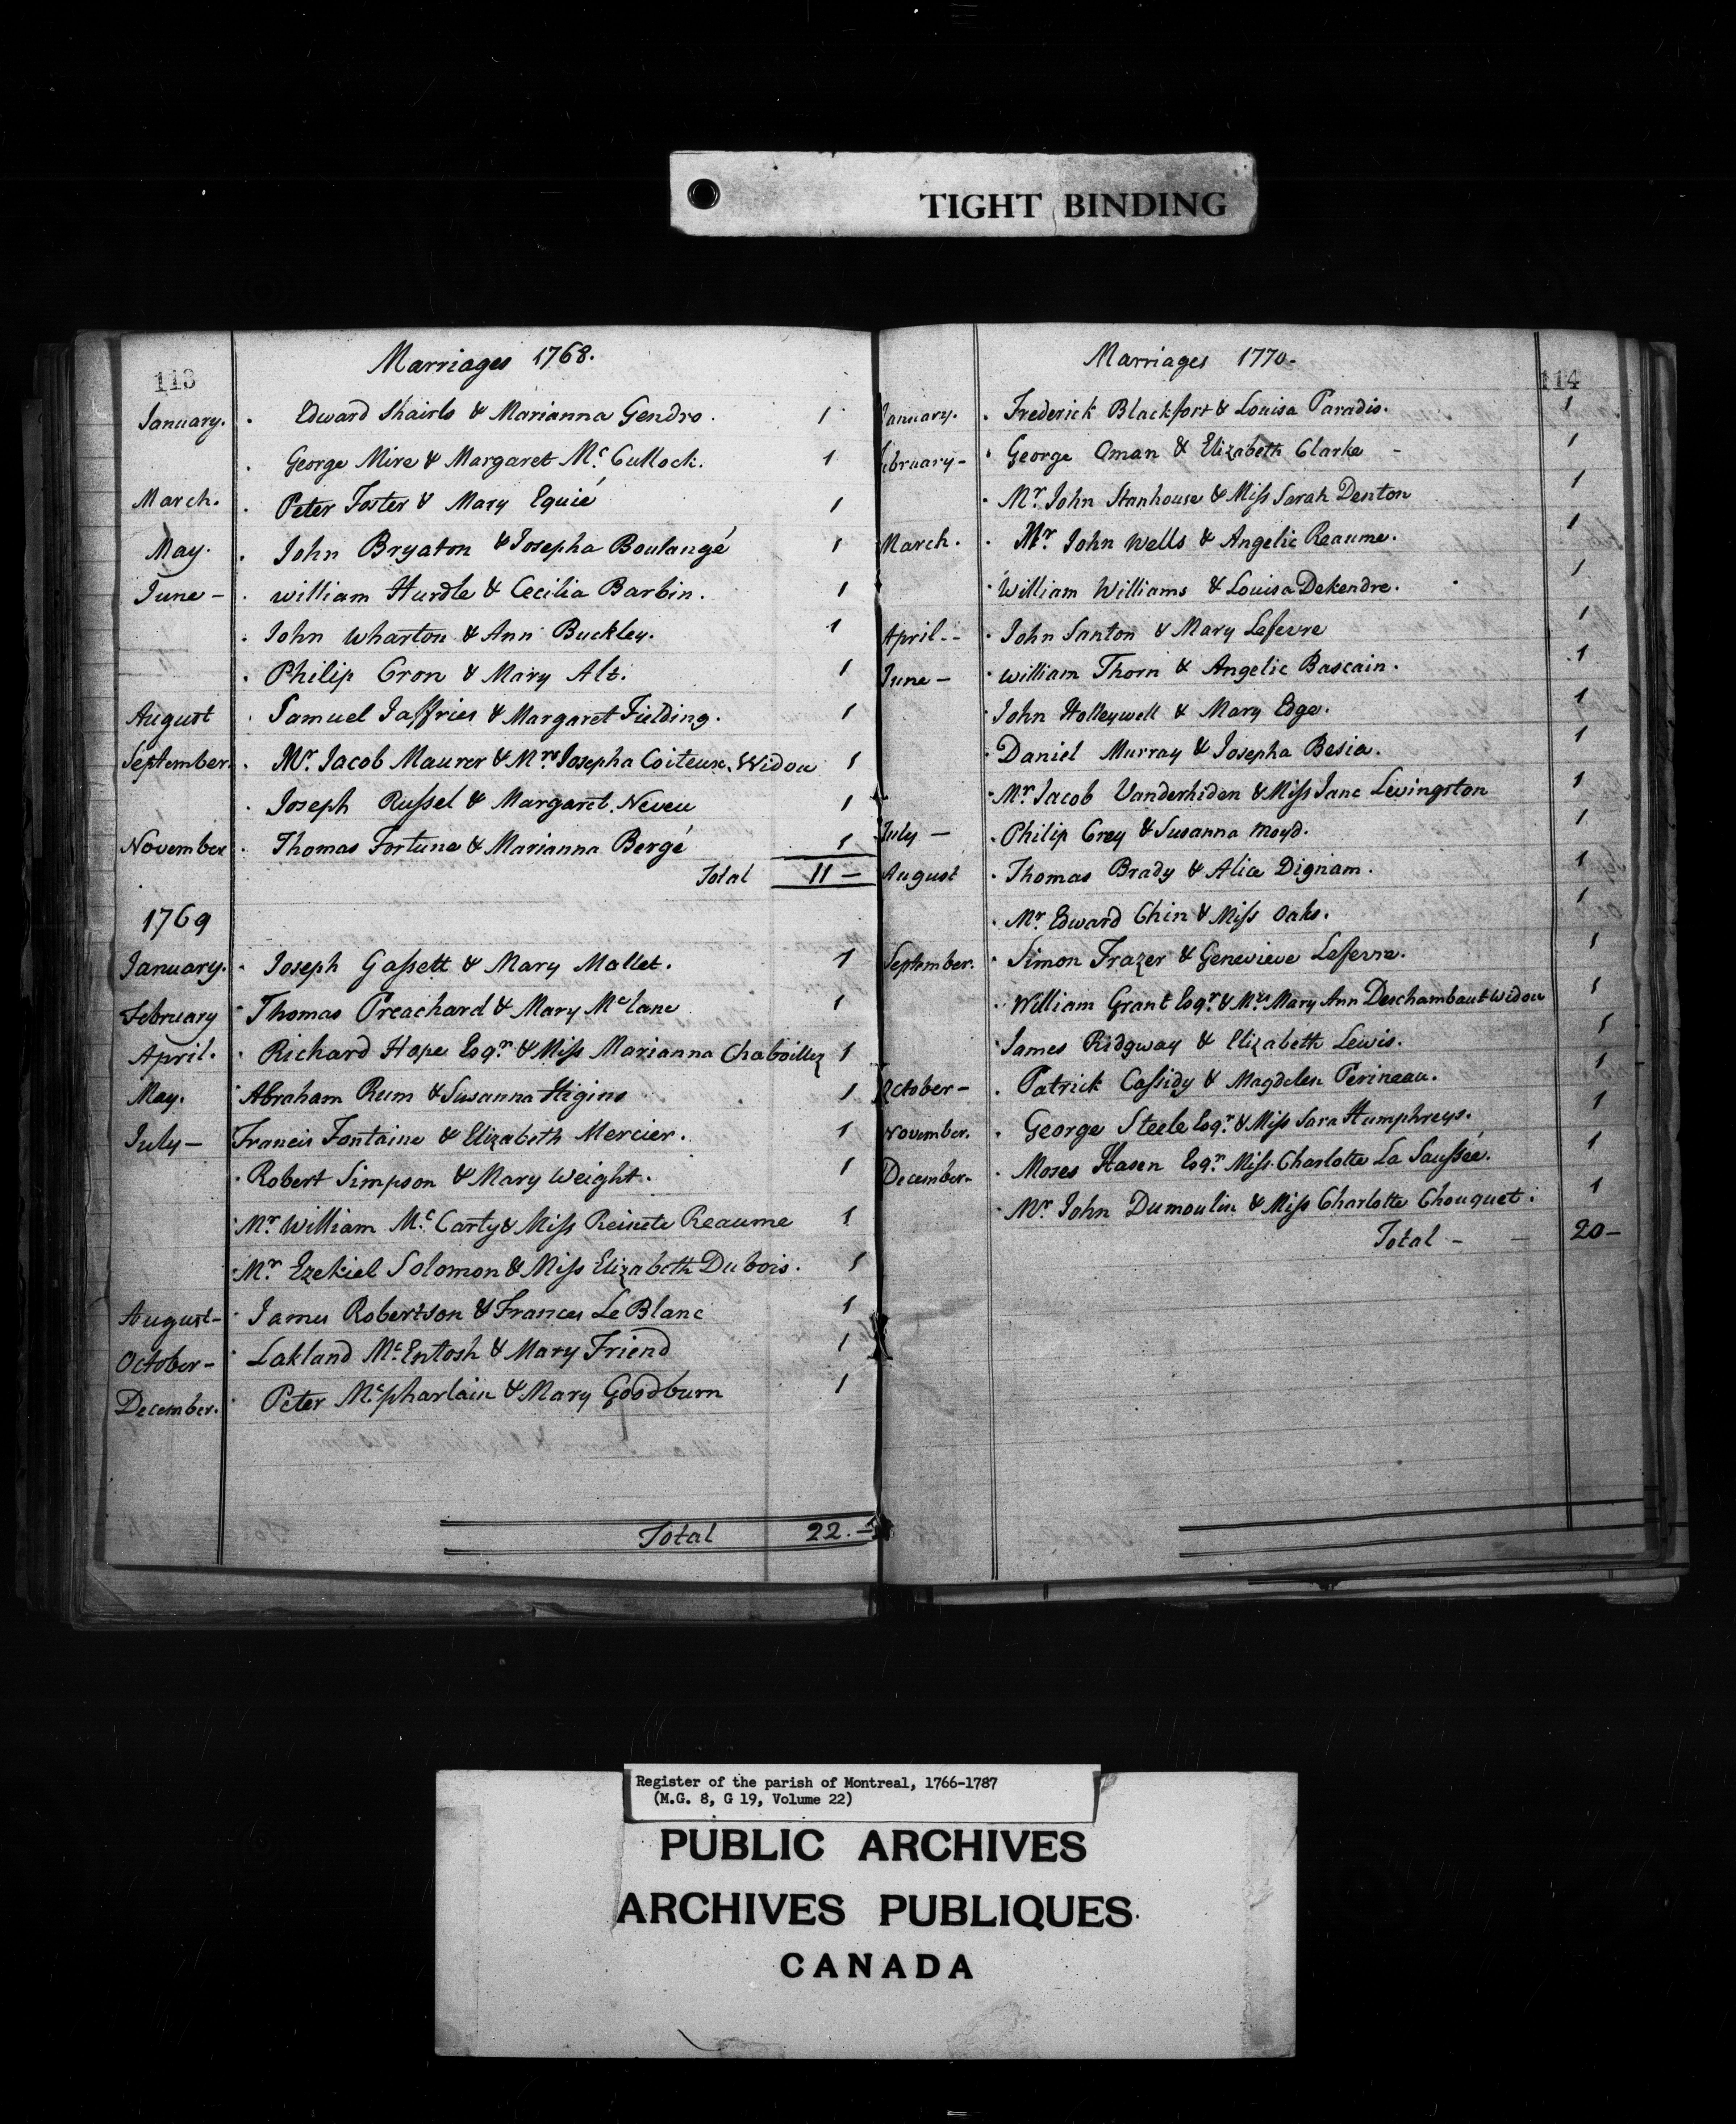 TIGHT BINDING
113
Marriages 1768.
January. Edward Shairls & Marianna Gendro. 1
George Mire & Margaret Mc. Cullock. 1
March. Peter Foster & Mary Equié 1
May. John Bryaton & Josepha Boulangé 1
June - william Hurdle & Cecilia Barbin. 1
John Wharton & Ann Buckley. 1
Philip Cron & Mary Alt. 1
August Samuel Jaffries & Margaret Fielding. 1
September. Mr. Jacob Maurer & Mrs Josepha Coiteux. Widow 1
Joseph Russel & Margaret Neveu 1
November Thomas Fortune & Marianna Bergé 1
Total 11 -
1769
January. Joseph Gassett & Mary Mallet. 1
February Thomas Preachard & Mary Mc lane 1
April. Richard Hope Esqr. & Miss Marianna Chaboillez 1
May. Abraham Rum & Susanna Higins 1
July - Francis Fontaine & Elizabeth Mercier. 1
Robert Simpson & Mary Weight. 1
Mr. William Mc. Carty & Miss Reinete Reaume 1
Mr. Ezekiel Solomon & Miss Elizabeth Dubois. 1
August - James Robertson & Frances Le Blanc 1
October - Lakland Mc. Entosh & Mary Friend 1
December. Peter Mc. pharlain & Mary Goodburn 1
Total 22. -
114
Marriages 1770-
January. Frederick Blackfort & Louisa Paradis. 1
February - George Oman & Elizabeth Clarke - 1
Mr. John Stanhouse & Miss Sarah Denton 1
March. Mr. John Wells & Angelic Reaume. 1
William Williams & Louisa Dekendre. 1
April. - John Santon & Mary Lefevre 1
June - william Thorn & Angelic Bascain. 1
John Holleywell & Mary Edge. 1
Daniel Murray & Josepha Besia. 1
Mr. Jacob Vanderhiden & Miss Jane Levingston 1
July - Philip Crey & Susanna Moyd. 1
August Thomas Brady & Alice Dignam. 1
Mr. Edward Chin & Miss Oaks. 1
September. Simon Frazer & Genevieve Lefevre. 1
William Grant Esqr. & Mrs. Mary Ann Deschambaut Widow 1
James Ridgway & Elizabeth Lewis. 1
October - Patrick Cassidy & Magdelen Perineau. 1
November. George Steele Esqr. & Miss Sara Humphreys. 1
December. Moses Hasen Esqr. Miss Charlotte La Saussée. 1
Mr. John Dumoulin & Miss Charlotte Chouquet. 1
Total - - 20 -
Register of the parish of Montreal, 1766-1787
(M.G. 8, G 19, Volume 22)
PUBLIC ARCHIVES
ARCHIVES PUBLIQUES
CANADA